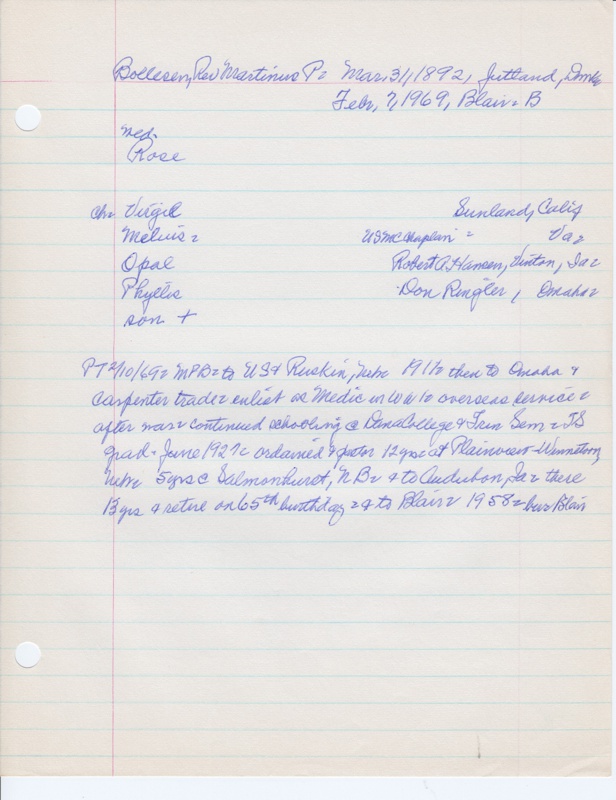 Bollesen, Rev Martinus P- Mar, 31, 1892, Jutland, Dmk
Feb, 7, 1969, Blair- B
Med-
Rose
ch- Virgil Sunland, Calif
Melvis- USMC Chaplain - Va-
Opal Robert A Hansen, Vinton, Ia-
Phyllis Don Ringler, Omaha-
son +
PT 2/10/69- MPB- to US & Ruskin, Nebr 1911- then to Omaha &
carpenter trade- enlist as Medic in WW1- overseas service-
after war- continued schooling @ Dana College & Trin Sem- TS
grad- June 1927- ordained & pastor 12 yrs at Plainview-Winnetoon,
Nebr- 5 yrs @ Salmonhurst, NB- & to Audubon, Ia- there
13 yrs & retire on 65th birthday- & to Blair- 1958- bur Blair